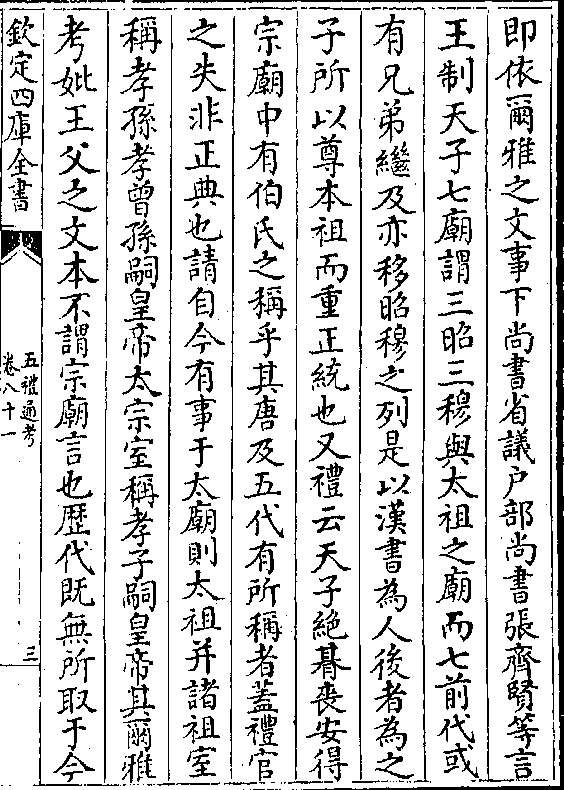 即依爾雅之文事下尚書省議户部尚書張齊賢等言
王制天子七廟謂三昭三穆與太祖之廟而七前代或
有兄弟繼及亦移昭穆之列是以漢書為人後者為之
子所以尊本祖而重正統也又禮云天子絶朞喪安得
宗廟中有伯氏之稱乎其唐及五代有所稱者蓋禮官
之失非正典也請自今有事于太廟則太祖并諸祖室
稱孝孫孝曾孫嗣皇帝太宗室稱孝子嗣皇帝其爾雅
考妣王父之文本不謂宗廟言也歴代既無所取于今
欽定四庫全書
五禮通考
卷八十一
三